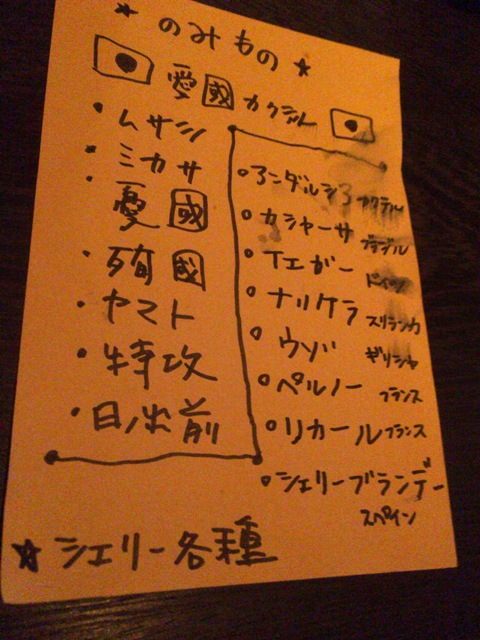 ★ のみもの ★
愛國カクテル
・ムサシ
・ミカサ
・憂國
・殉國
・ヤマト
・特攻
・日ノ出前
○アンダルシア カクテル
○カシャーサ ブラジル
○イエガー ドイツ
○ナリケラ スリランカ
○ウゾ ギリシャ
○ペルノー フランス
○リカール フランス
○シェリーブランデー
スペイン
☆ シェリー各種